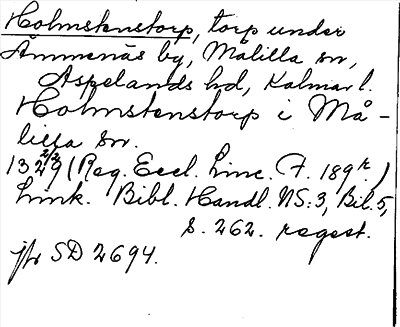 Holmstenstorp, torp under
Åmmenäs by, Målilla sn,
Aspelands hd, Kalmar l.
Holmstenstorp i Må-
lilla sn.
13 2/2 29 (Reg. Eccl. Linc. F. 189 r.)
Link. Bibl. Handl. NS:3, Bil. 5,
s. 262. regest.
jfr SD 2694.